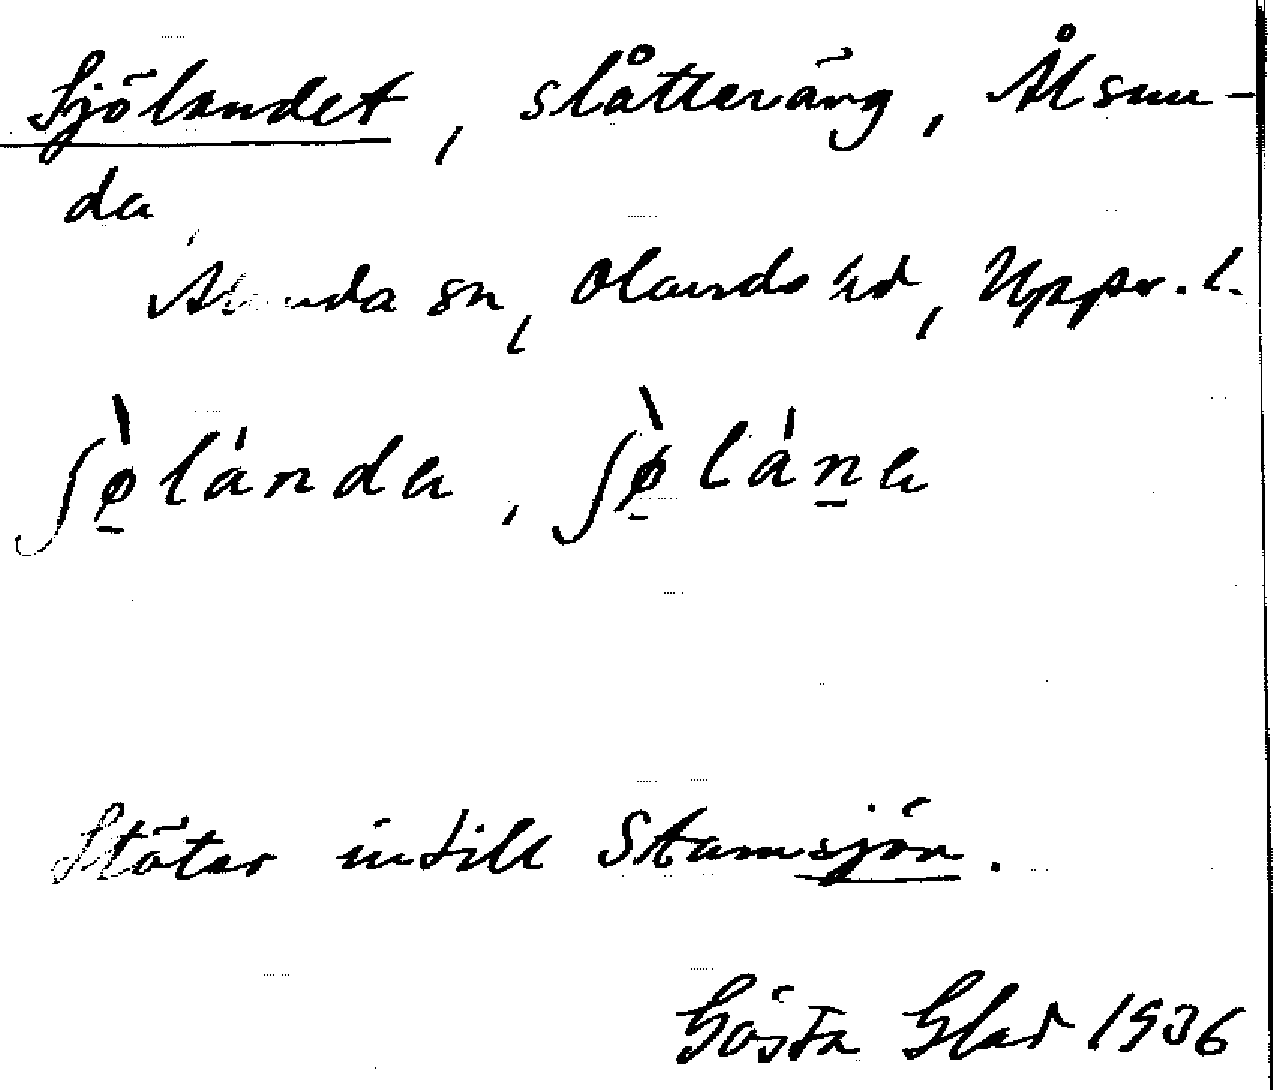 Sjölandet, slåtteräng, Ålsun-
da
Alunda sn, Olands hd, Upps. l.
ʃø̱̀lánda, ʃø̱̀láṉa
Stöter intill Stamsjön.
Gösta Glad 1936